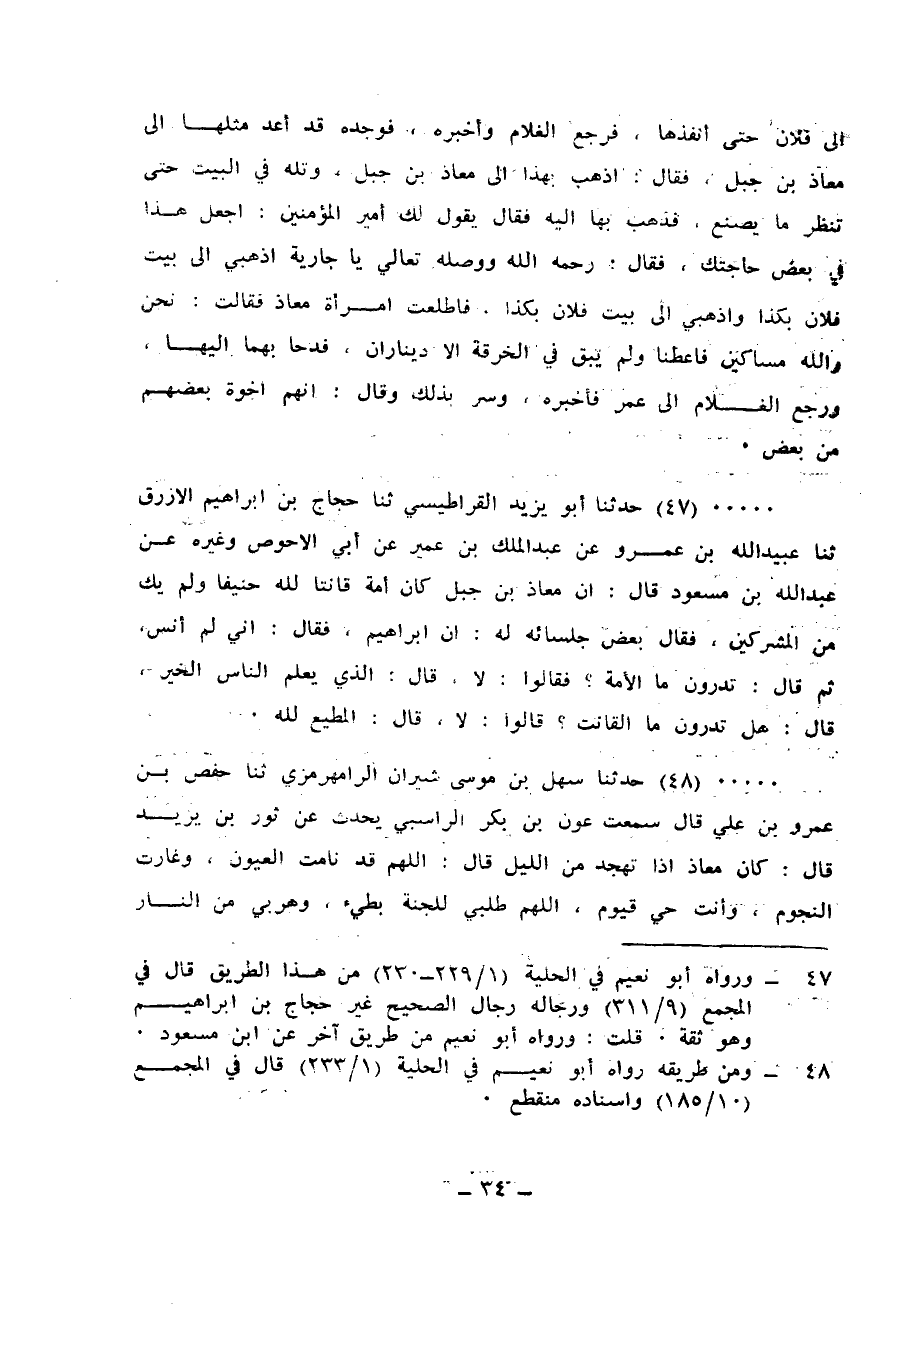 الى فلان حتى أنفذها ، فرجع الغلام وأخبره ، فوجده قد أعد مثلهـــا الى
معاذ بن جبل ، فقال : اذهب بهذا الى معاذ بن جبل ، وتله في البيت حتى
تنظر ما يصنع ، فذهب بها اليه فقال يقول لك أمير المؤمنين : اجعل هــذا
في بعض حاجتك ، فقال : رحمه الله ووصله تعالي يا جارية اذهبي الى بيت
فلان بكذا واذهبي الى بيت فلان بكذا . فاطلعت امـــرأة معاذ فقالت : نحن
والله مساكين فاعطنا ولم يبق في الخرقة الا ديناران ، فدحا بهما اليهـــا ،
ورجع الغـــلام الى عمر فأخبره ، وسر بذلك وقال : انهم اخوة بعضهـم
من بعض ٠
٠٠٠٠٠ (٤٧) حدثنا أبو يزيد القراطيسي ثنا حجاج بن ابراهيم الازرق
ثنا عبيدالله بن عمـــرو عن عبدالملك بن عمير عن أبي الاحوص وغيره عـن
عبدالله بن مسعود قال : ان معاذ بن جبل كان أمة قانتا لله حنيفا ولم يك
من المشركين ، فقال بعض جلسائه له : ان ابراهيم ، فقال : اني لم أنس،
ثم قال : تدرون ما الأمة ؟ فقالوا : لا ، قال : الذي يعلم الناس الخير ،
قال : هل تدرون ما القانت ؟ قالوا : لا ، قال : المطيع لله ٠
٠٠٠٠٠ (٤٨) حدثنا سهل بن موسى شيران الرامهرمزي ثنا حفص بـن
عمرو بن علي قال سمعت عون بن بكر الراسبي يحدث عن ثور بن يزيـــد
قال : كان معاذ اذا تهجد من الليل قال : اللهم قد نامت العيون ، وغارت
النجوم ، وأنت حي قيوم ، اللهم طلبي للجنة بطيء ، وهربي من النـــار
٤٧ ــ ورواه أبو نعيم في الحلية (٢٢٩/١ــ٢٣٠) من هــذا الطريق قال في
المجمع (٣١١/٩) ورجاله رجال الصحيح غير حجاج بن ابراهيـــم
وهو ثقة ٠ قلت : ورواه أبو نعيم من طريق آخر عن ابن مسعود ٠
٤٨ ــ ومن طريقه رواه أبو نعيـــم في الحلية (٢٣٣/١) قال في المجمـــع
(١٨٥/١٠) واسناده منقطع ٠
ــ ٣٤ ــ